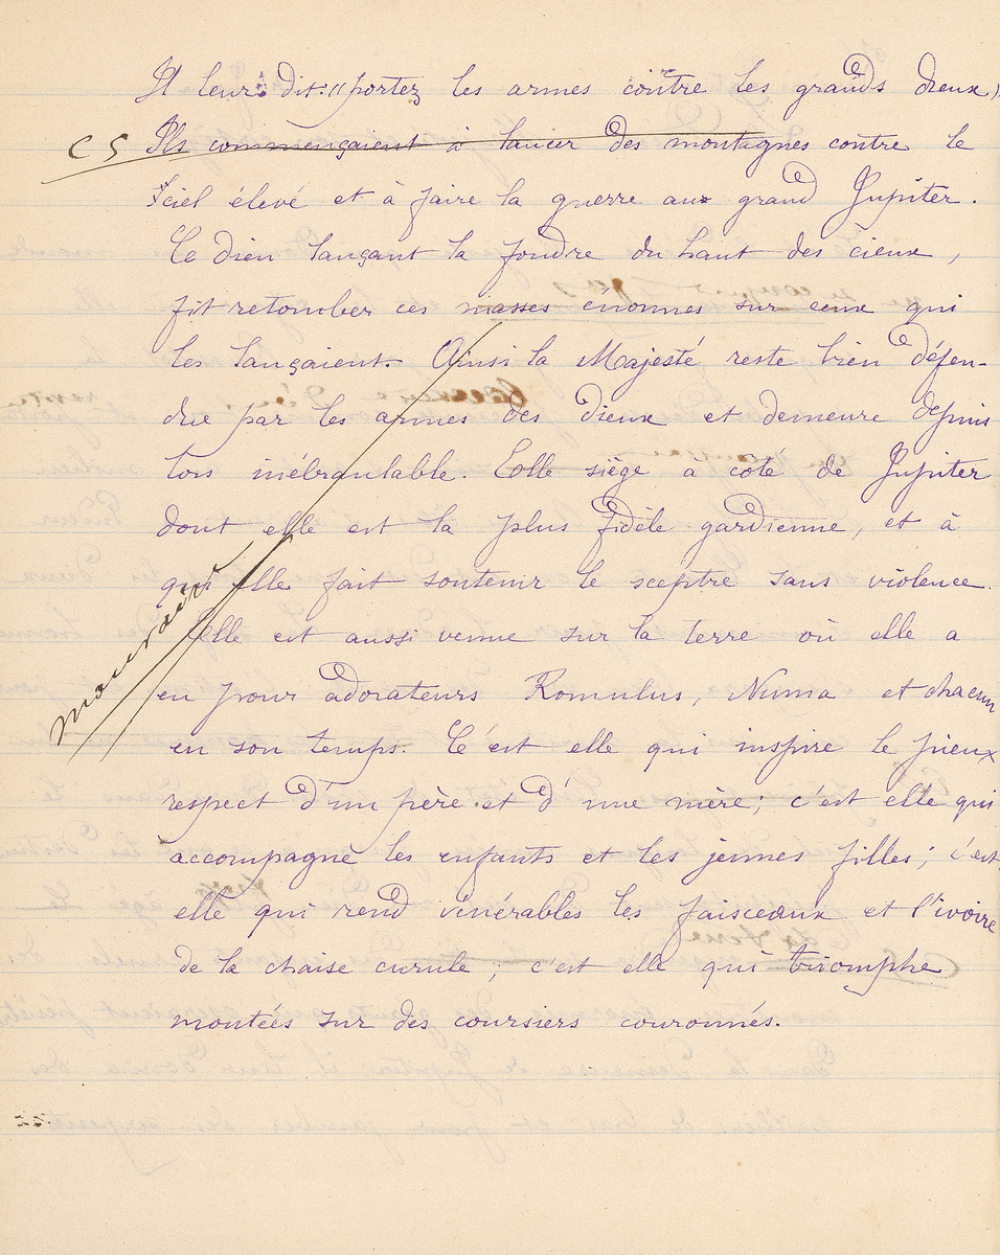 Il leur dit: "portez les armes contre les grands dieux,
CS Ils commençaient à lancer des montagnes contre le
ciel élevé et à faire la guerre au grand Jupiter.
Ce dieu lançant la foudre du haut des cieux,
fit retomber ces masses énormes sur ceux qui
les lançaient. Ainsi la Majesté reste bien défen-
due par les armes des dieux et demeure depuis
lors inébranlable. Elle siège a côté de Jupiter
dont elle est la plus fidèle gardienne, et à
qui elle fait soutenir le sceptre sans violence.
mauvais
Elle est aussi venue sur la terre où elle a
eu pour adorateurs Romulus, Numa et chacun
en son temps. C'est elle qui inspire le pieux
respect d'un père et d'une mère; c'est elle qui
accompagne les enfants et les jeunes filles; c'est
elle qui rend vénérables les faisceaux et l'ivoire
de la chaise curule; c'est elle qui triomphe
montées sur des coursiers couronnés.